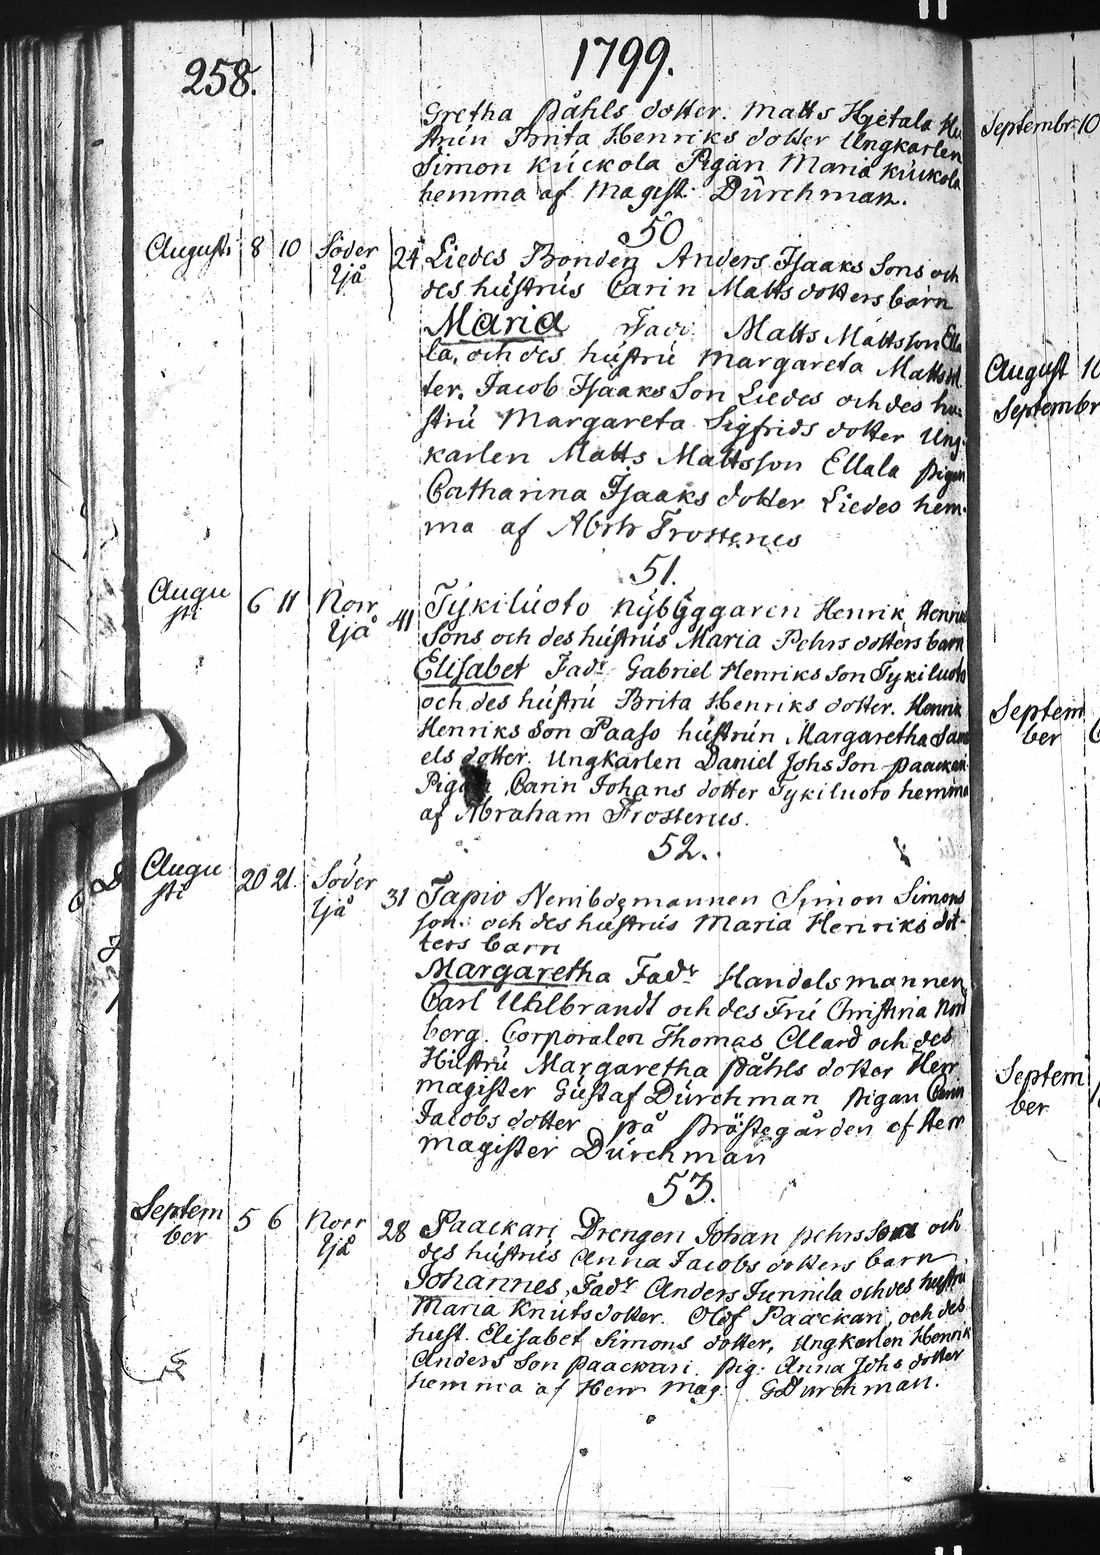 258.
1799.
Gretha Påhls dotter. Matts Hietala Hu
strun Brita Henriks dotter Ungkarlen
Simon Kuckola Pigan Maria Kuckola
hemma af Magist. Dürchman.
50
Augusti 8 10 Söder Ijå 24 Liedes Bonden Anders Isaaks Sons och
des hustrus Carin Matts dotters barn
Maria Fadr Matts Mattsson Ella
la, och des hustru Margareta Matts dot
ter. Jacob Isaaks Son Liedes och des hu-
stru Margareta Sigfrids dotter Ung-
karlen Matts Mattsson Ellala Pigan
Catharina Isaaks dotter Liedes hem-
ma af Abrh Frosterus
51.
Augu sti 6 11 Norr Ijå 41 Tykiluoto Nybyggaren Henrik Henriks
Sons och des hustrus Maria Pehrs dotters barn
Elisabet Fadr Gabriel Henriks Son Tykiluoto
och des hustru Brita Henriks dotter. Henrik
Henriks Son Paaso hustrun Margaretha Samu
els dotter. Ungkarlen Daniel Johs Son Paackari
Pigan Carin Johans dotter Tykiluoto hemma
af Abraham Frosterus.
52.
Augu sti 20 21. Söder Ijå 31 Tapio Nembdemannen Simon Simons
son och des hustrus Maria Henriks dot-
ters barn
Margaretha Fadr Handelsmannen
Carl Uhlbrandt och des Fru Christina Nord
berg. Corporalen Thomas Allard och des
Hustru Margaretha Påhls dotter Herr
magister Gustaf Dürchman Pigan Carin
Jacobs dotter på Prästegården af Herr
magister Dürchman
53.
Septem ber 5 6 Norr Ijå 28 Paackari Drengen Johan Pehrs Sons och
des hustrus Anna Jacobs dotters barn
Johannes, Fadr Anders Junnila och des hustru
Maria Knuts dotter. Olof Paackari, och des
hust. Elisabet Simons dotter, Ungkarlen Henrik
Anders Son Paackari. Pig: Anna Johs dotter
hemma af Herr Mag: G Durchman.
Septembr 10
August 10
Septembr
Septem
ber
Septem
ber